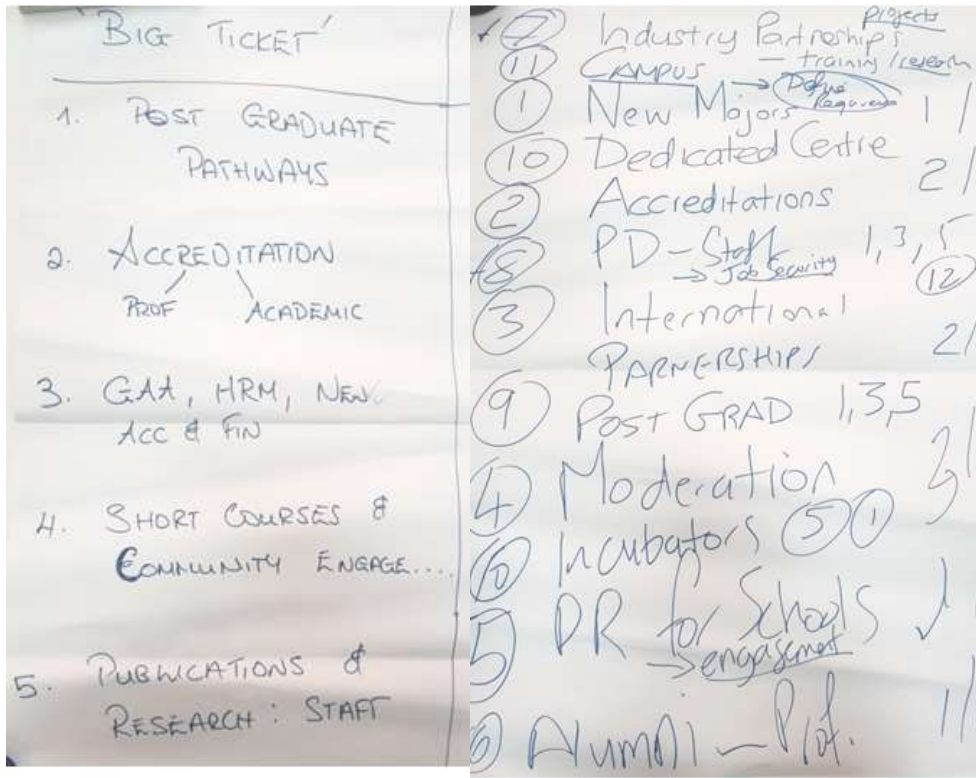 'BIG TICKET'
1. POST GRADUATE
PATHWAYS
2. ACCREDITATION
PROF ACADEMIC
3. GAA, HRM, NEW
ACC & FIN
4. SHORT COURSES &
COMMUNITY ENGAGE....
5. PUBLICATIONS &
RESEARCH : STAFF
projects
7 Industry Partnerships
— training / research
11 CAMPUS → Define
Requirements
1 New Majors 1
10 Dedicated Centre
2 Accreditations 2
8 PD - Staff 1, 3, 5
→ Job Security 12
3 International
PARNERSHIPS 2
9 POST GRAD 1,3,5
4 Moderation
Incubators 5 1
5 PR for Schools
→ engagement
Alumni - Prof.